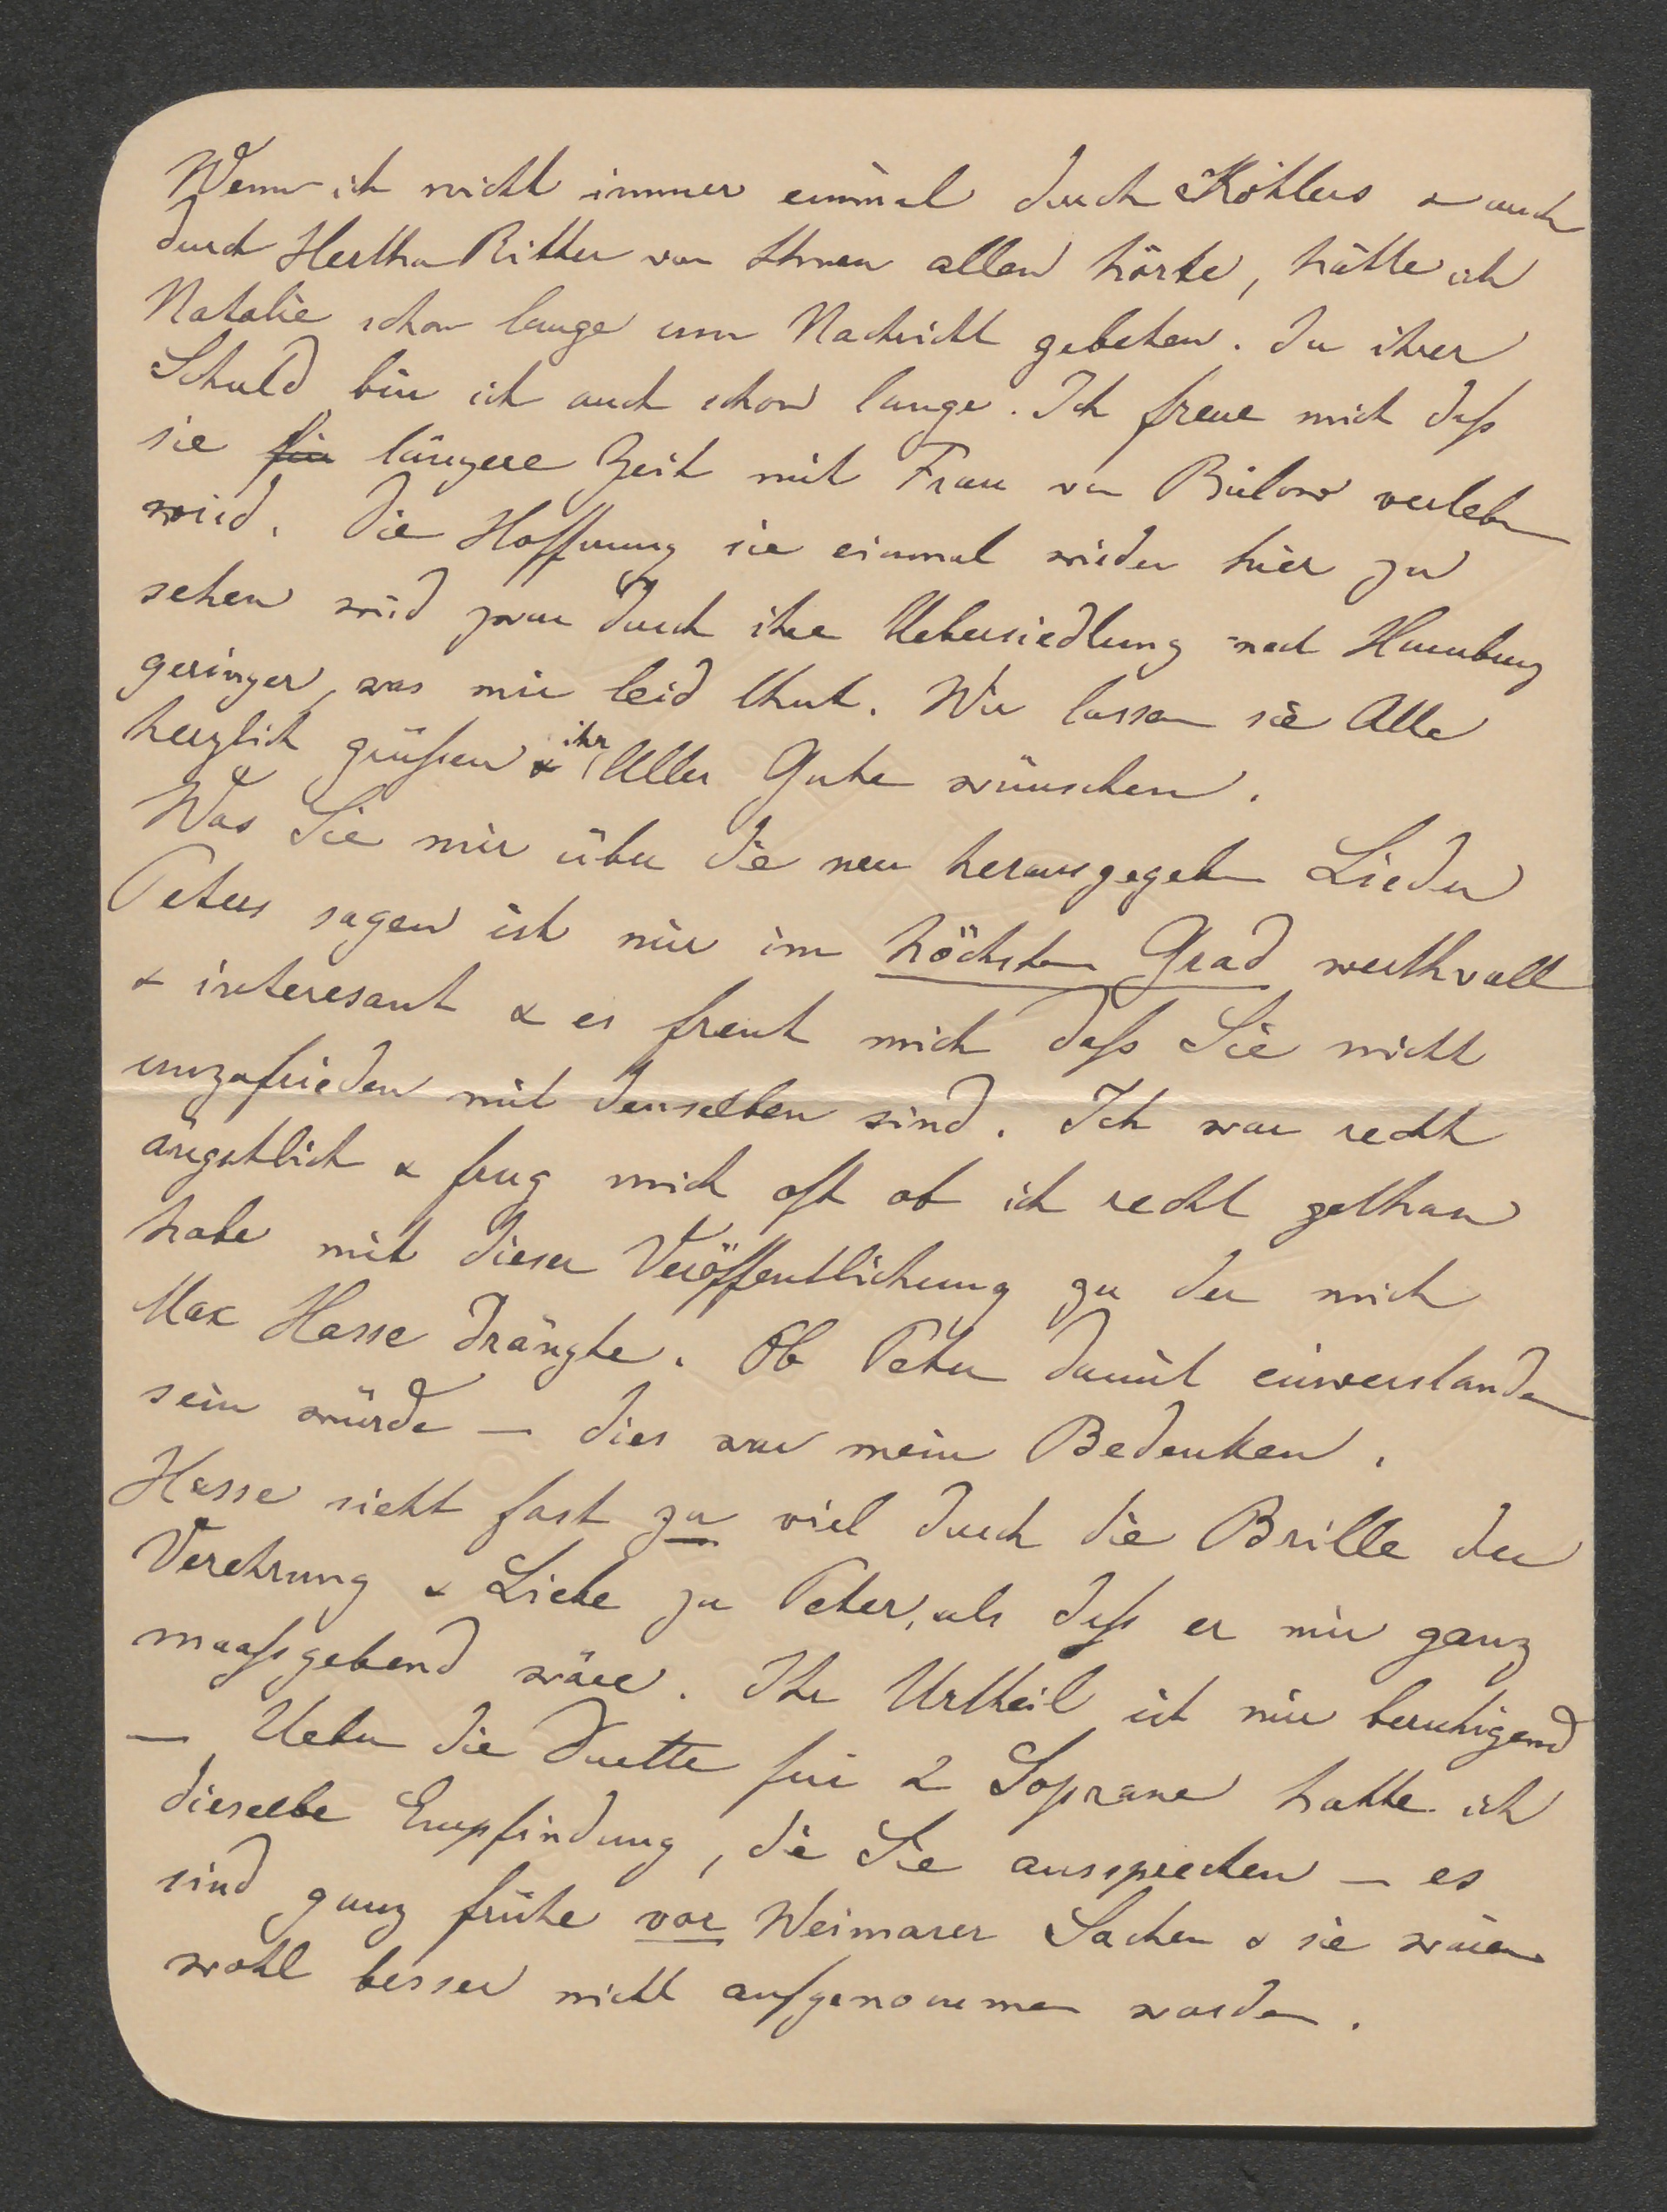 Wenn ich nicht immer einmal durch Köhlers & auch
durch Hertha Ritter von Ihnen allen hörte, hätte ich
Natalie schon lange um Nachricht gebeten. In ihrer
Schuld bin ich auch schon lange. Ich freue mich daß
sie für längere Zeit mit Frau von Bülow verleben
wird. Die Hoffnung sie einmal wieder hier zu
sehen wird zwar durch ihre Uebersiedlung nach Hamburg
geringer, was mir leid thut. Wir lassen sie Alle
herzlich grüßen & ihr Alles Gute wünschen.
Was Sie mir über die neu herausgegeben Lieder
Peters sagen ist mir im höchsten Grad werthvoll
& interesant & es freut mich daß Sie nicht
unzufrieden mit denselben sind. Ich war recht
ängstlich & frug mich oft ob ich recht gethan
habe mit dieser Veröffentlichung zu der mich
Max Hasse drängte. Ob Peter damit einverstanden
sein würde — dies war mein Bedenken.
Hasse sieht fast zu viel durch die Brille der
Verehrung & Liebe zu Peter, als daß er mir ganz
maaßgebend wäre. Ihr Urtheil ist mir beruhigend
— Ueber die Duette für 2 Soprane hatte ich
dieselbe Empfindung, die Sie aussprechen — es
sind ganz frühe vor Weimarer Sachen & sie wären
wohl besser nicht aufgenommen worden.